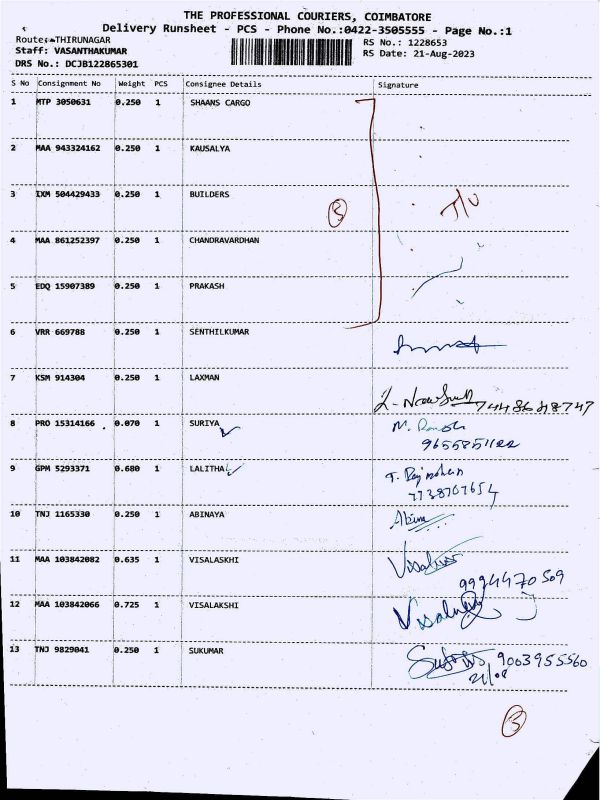 THE PROFESSIONAL COURIERS, COIMBATORE
Delivery Runsheet - PCS - Phone No.:0422-3505555 - Page No.:1
Route: THIRUNAGAR
RS No.: 1228653
Staff: VASANTHAKUMAR
RS Date: 21-Aug-2023
DRS No.: DCJB122865301
S No Consignment No Weight PCS Consignee Details Signature
1 MTP 3050631 0.250 1 SHAANS CARGO
2 MAA 943324162 0.250 1 KAUSALYA
3 IXM 504429433 0.250 1 BUILDERS
3
4 MAA 861252397 0.250 1 CHANDRAVARDHAN
5 EDQ 15907389 0.250 1 PRAKASH
6 VRR 669788 0.250 1 SENTHILKUMAR
7 KSM 914304 0.250 1 LAXMAN
8 PRO 15314166 0.070 1 SURIYA M.
9 GPM 5293371 0.680 1 LALITHA T.
7738707654
10 TNJ 1165330 0.250 1 ABINAYA Abina
11 MAA 103842082 0.635 1 VISALASKHI
9994470509
12 MAA 103842066 0.725 1 VISALAKSHI
13 TNJ 9829041 0.250 1 SUKUMAR 9003955560
21/08
3